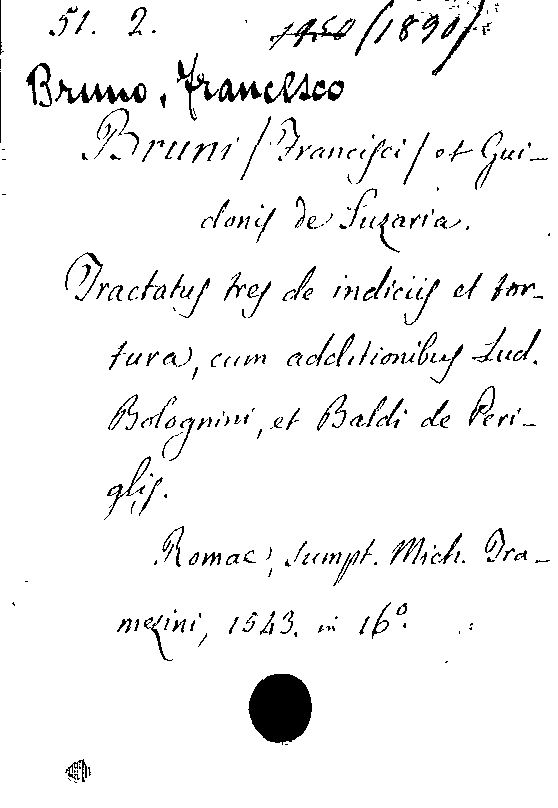 51. 2. 1950 /1890/
Bruno, Francesco
Bruni / Francisci / et Gui-
donis de Suzaria.
Tractatus tres de indiciis et tor-
tura, cum additionibus Lud.
Bolognini, et Baldi de Peri-
glis.
Romae, sumpt. Mich. Tra-
mezini, 1543. in 16°.